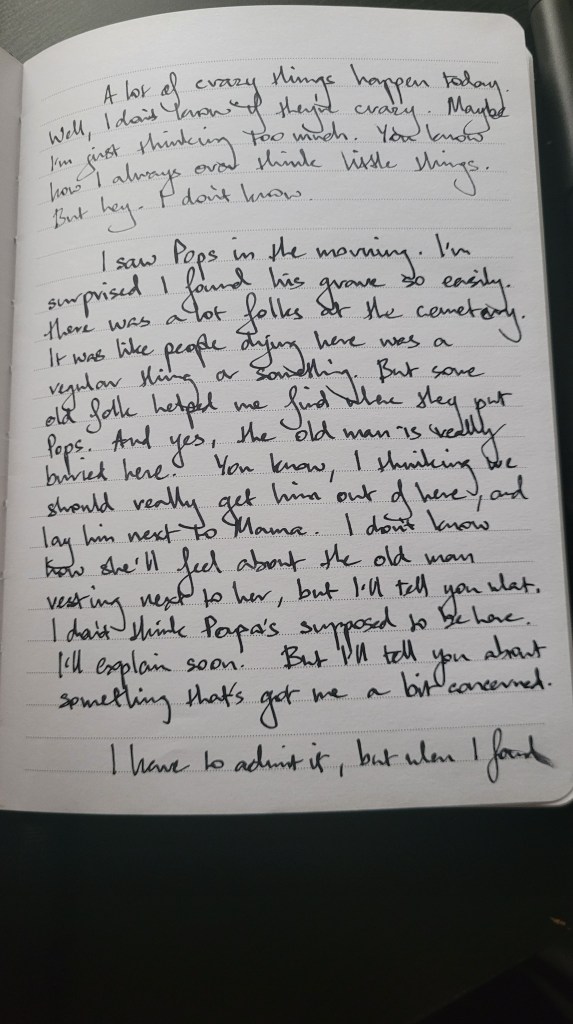 A lot of crazy things happen today.
Well, I don't know if they're crazy. Maybe
I'm just thinking too much. You know
how I always over think little things.
But hey. I don't know.
I saw Pops in the morning. I'm
surprised I found his grave so easily.
there was a lot folks at the cemetery.
It was like people dying here was a
regular thing or something. But some
old folk helped me find where they put
Pops. And yes, the old man is really
buried here. You know, I thinking we
should really get him out of here, and
lay him next to Mama. I don't know
how she'll feel about the old man
resting next to her, but I'll tell you what.
I don't think Papa's supposed to be here.
I'll explain soon. But I'll tell you about
something that's got me a bit concerned.
I have to admit it, but when I found